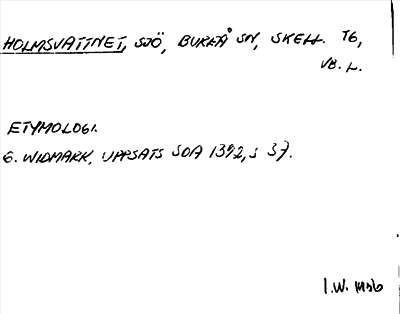 HOLMSVATTNET, SJÖ, BUREÅ SN, SKELL. TG,
VB. L.
ETYMOLOGI.
G. WIDMARK, UPPSATS SOA 1392, S 37.
I.W. 1956